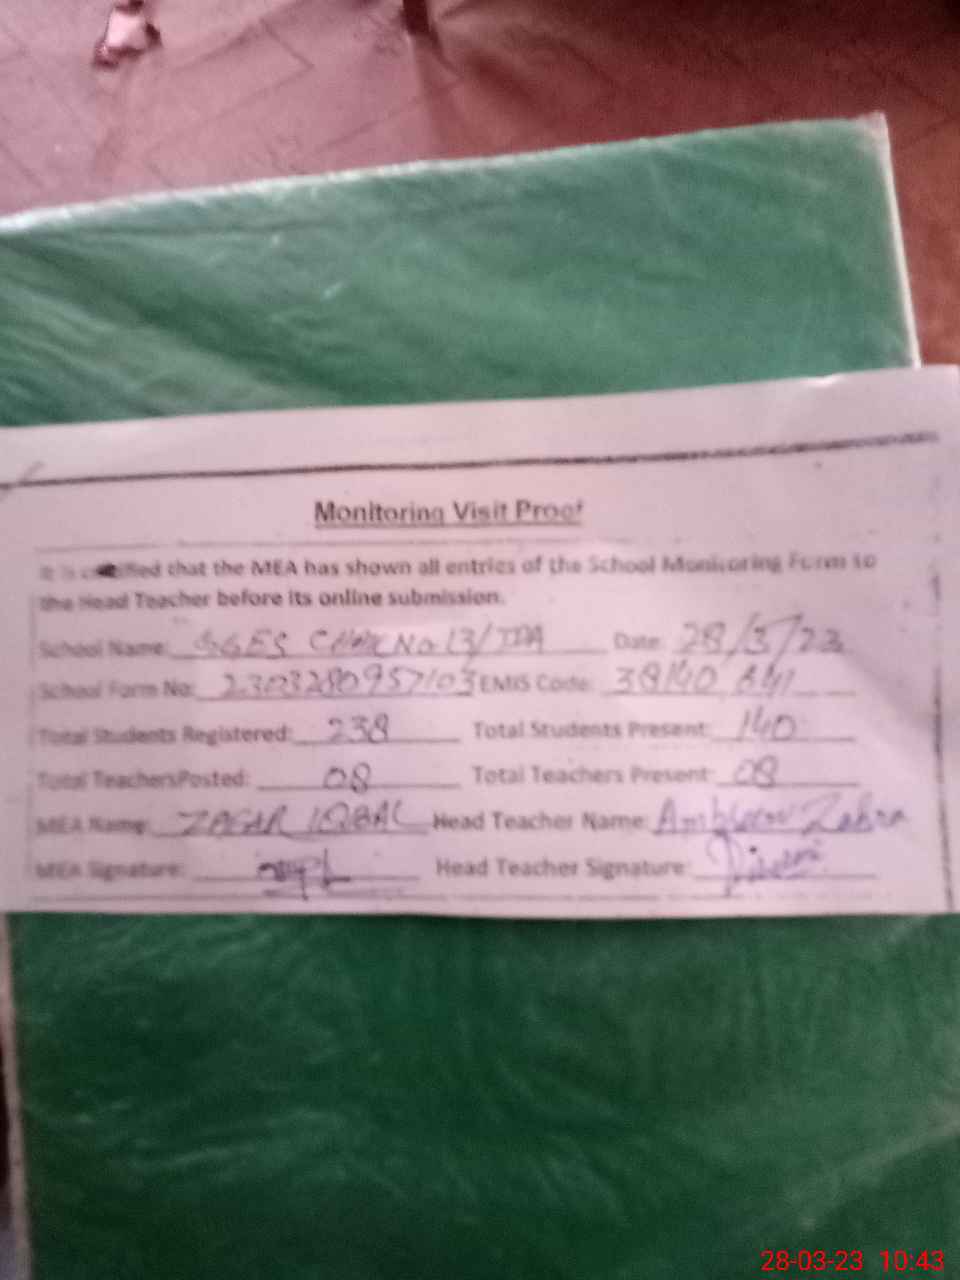 Monitoring Visit Proof
It is certified that the MEA has shown all entries of the School Monitoring Form to
the Head Teacher before its online submission.
School Name: GGES CHAK No 13/TDA Date: 28/3/23
School Form No: 2303280957103 EMIS Code: 38140
Total Students Registered: 238 Total Students Present: 140
Total TeachersPosted: 08 Total Teachers Present: 08
MEA Name: ZAFAR IQBAL Head Teacher Name: Zahra
MEA Signature: Head Teacher Signature:
28-03-23 10:43